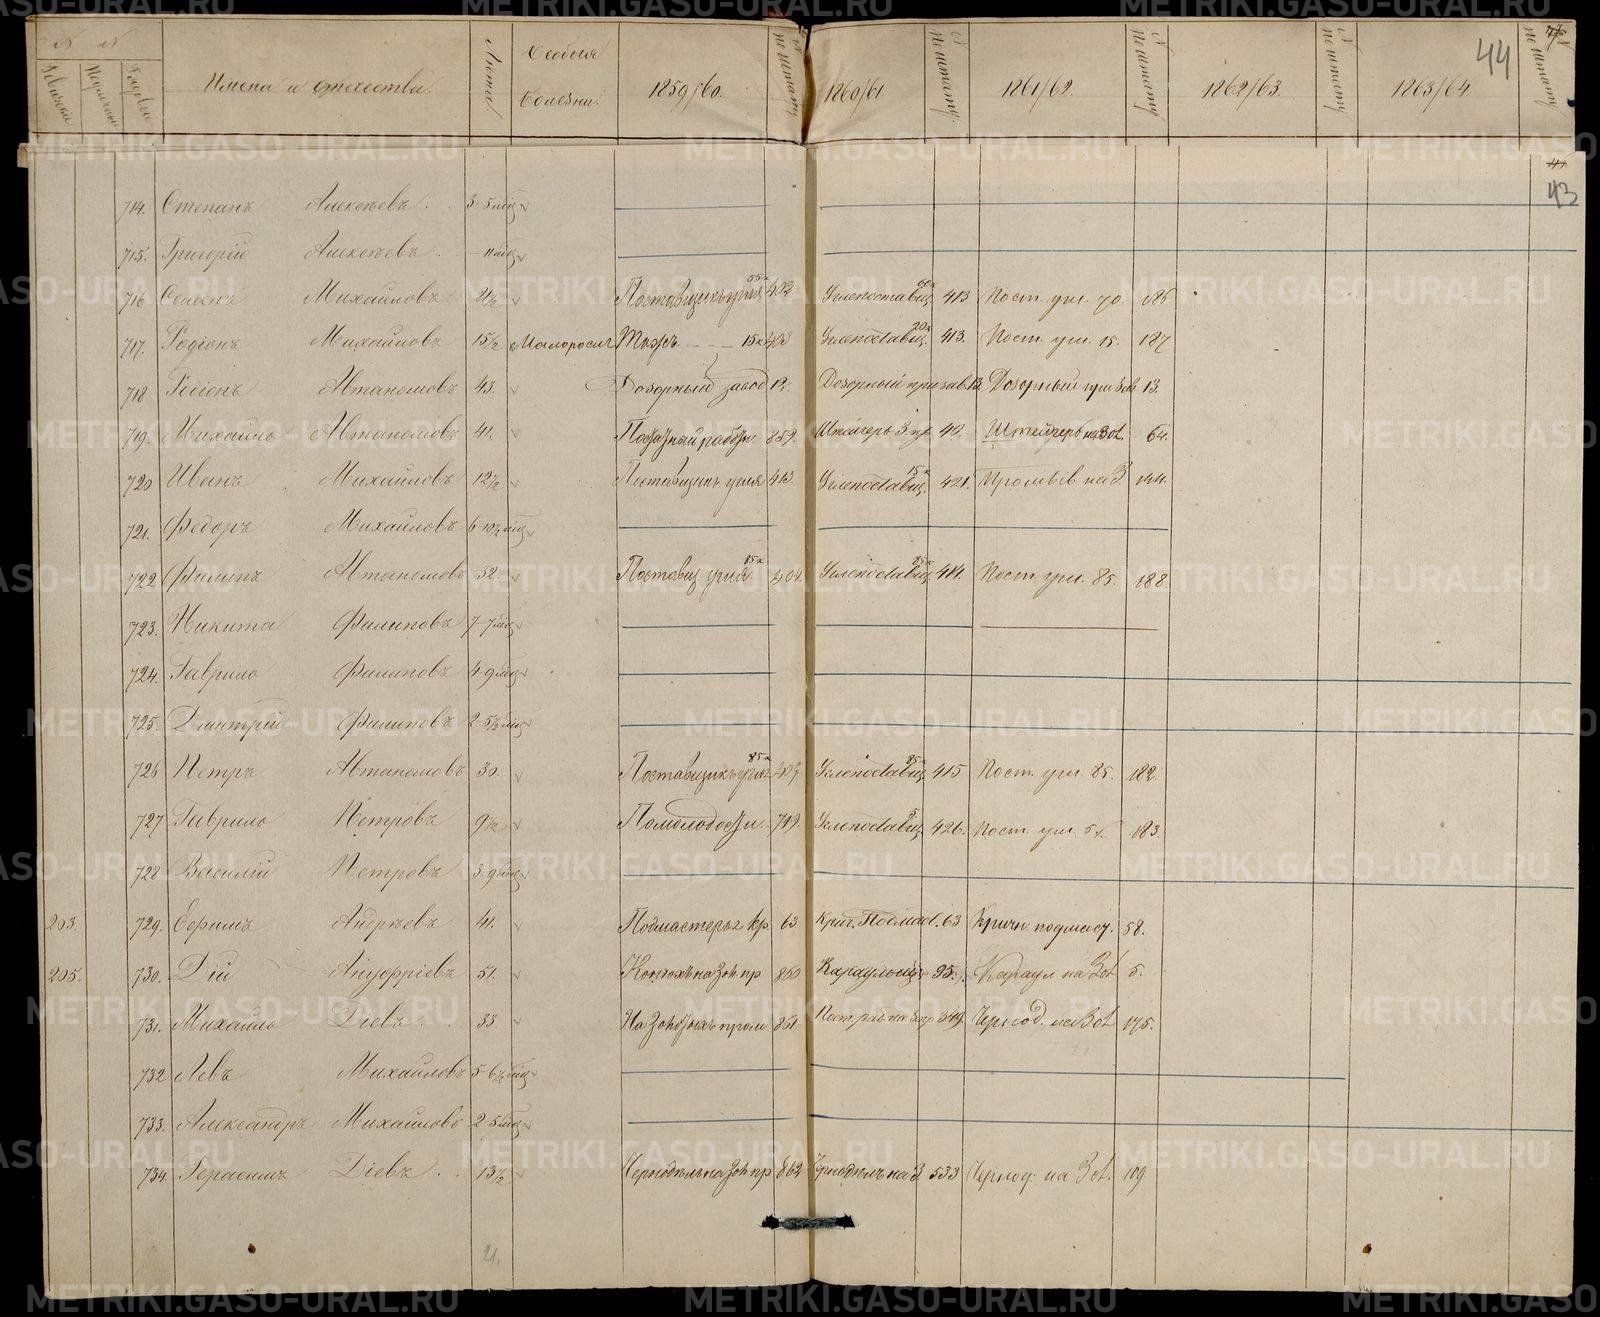 № № Ревизскіе Подушные Годовы Имена и отчества. Лѣта. Особыя Болезни. 1859/60. № по штату 1860/61 № по штату. 1861/62. № по штату 1862/63. № по штату 1863/64 № по штату 44
43
714. Степанъ Алексѣевъ . 3-5 мѣс
715. Григорій Алексѣевъ . - 11 мѣс
716 Семенъ Михайловъ 21/2 Поставщикъ угля 55к 402 Углепоставщ. 413 Пост. угл. 70. 185
717. Родіонъ Михайловъ 15/2 Малоросл Тожъ 15к 403 Углепоставщ. 20к 413. Пост. угл. 15. 187
718 Автаномовъ 43. Дозорный завод 12. Дозорный при зав. 13. Дозорный при Зав 13.
719. Михайло Автаномовъ 41. 859. Штейгеръ З. пр 42. Штейгеръ на Зол. 64.
720 Иванъ Михайловъ 12 1/2 Поставщикъ угля 413. Углепоставщ. 15к 421. на З 144.
721. Федоръ Михайловъ 6-10 1/2 мѣс
722 Филипъ Автаномовъ 32. Поставщ угля 85к 404 Углепоставщ. 85к 414. Пост. угл. 85. 188.
723. Никита Филиповъ 7-7 мѣс
724. Гаврило Филиповъ 4-9 мѣс
725. Дмитрій Филиповъ 2-5 1/2 мѣс
726 Петръ Автаномовъ 30. Поставщикъ угля 85к 405 Углепоставщ. 85к 415 Пост. угл. 85. 182.
727 Гаврило Петровъ 9 1/2 749. Углепоставщ. 5 426. Пост. угл. 5к 183.
728 Василій Петровъ 3-9 мѣс
203. 729. Ефимъ Андрѣевъ 41. Подмастерье кр 63 Крич. Подмаст. 63 Кричн. подмаст. 58.
205. 730. Дій Ануфріевъ 51. Конюхъ на Зол. пр 860 Караульщ 95. Караул на Зол 5.
731. Михайло Діевъ . . 33. На Золотыхъ пром 861. Пост. раб. на З. пр 349. Чернод. на Зол 175.
732 Левъ Михайловъ 5-6 1/2 мѣс
733. Александръ Михайловъ 2-5 мѣс
734. Герасимъ Діевъ . . 13 1/2 Чернодѣлъ на Зол. пр 862 Чернодѣлъ на З. 533 Чернод. на Зол. 109
21.
METRIKI.GASO-URAL.RU